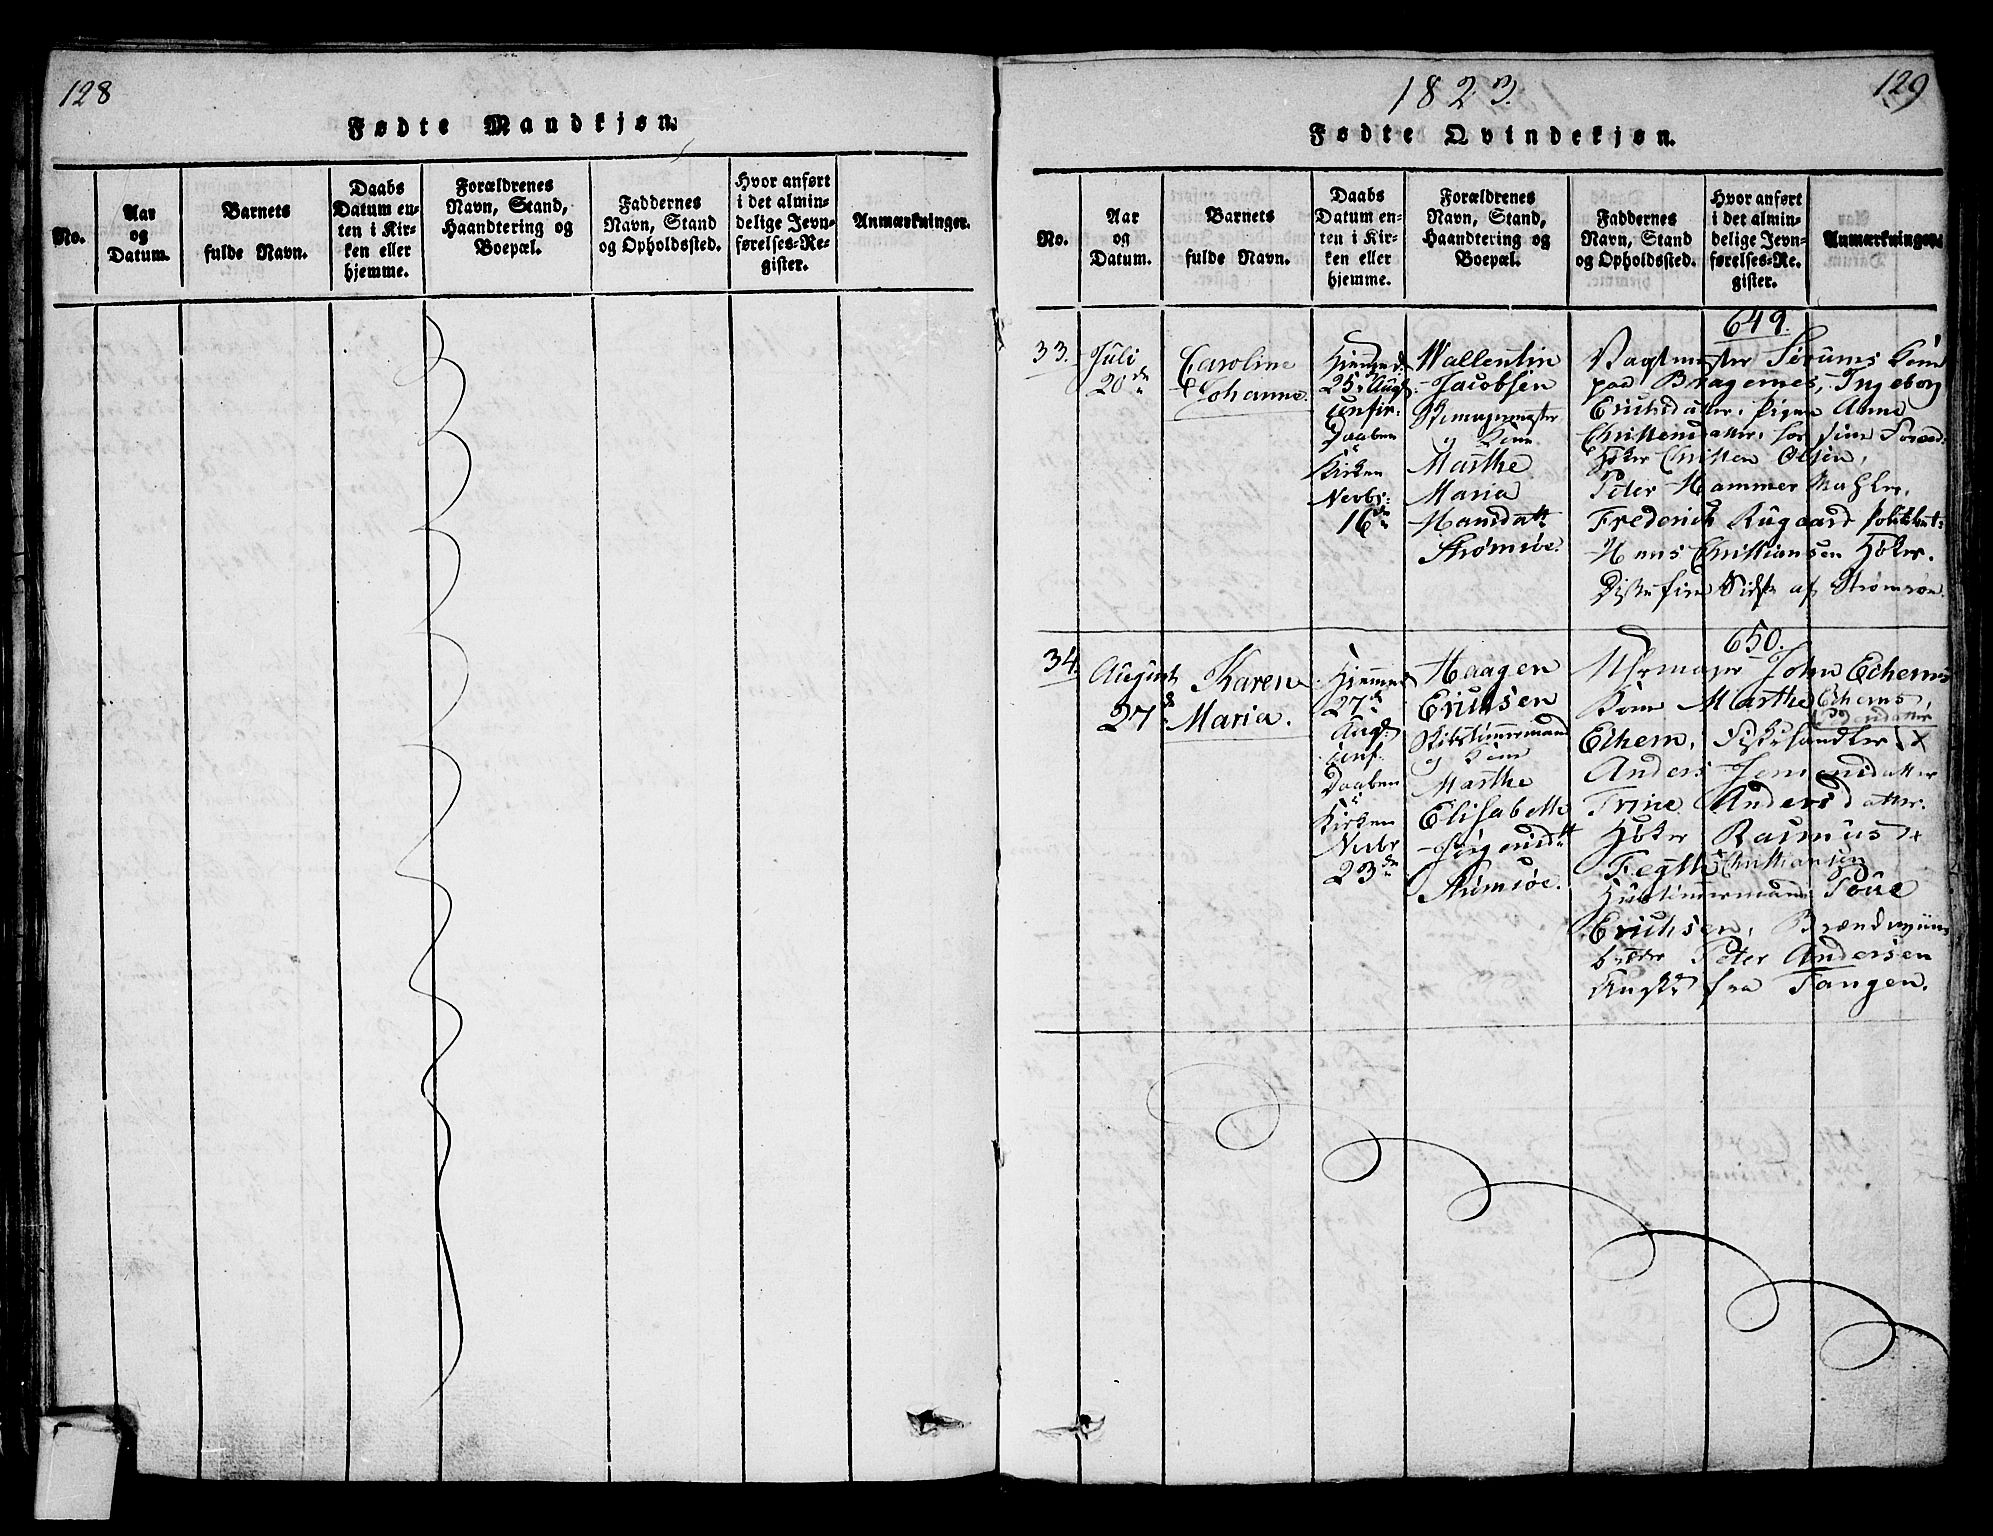 128
Fødte Mandkjøn.
No.
Aar
og
Datum.
Barnets
fulde Navn.
Daabs
Datum en-
ten i Kir-
ken eller
hjemme.
Forældrenes
Navn, Stand,
Haandtering og
Boepæl.
Faddernes
Navn, Stand
og Opholdssted.
Hvor anført
i det almin-
delige Jevn-
førelses-Re-
gister.
Anmærkninger.
1823.
129
Fødte Qvindekjøn.
No.
Aar
og
Datum.
Barnets
fulde Navn.
Daabs
Datum en-
ten i Kir-
ken eller
hjemme.
Forældrenes
Navn, Stand,
Haandtering og
Boepæl.
Faddernes
Navn, Stand
og Opholdssted.
Hvor anført
i det almin-
delige Jevn-
førelses-Re-
gister.
Anmærkninger.
33.
Juli
20de
Caroline
Johanne
Hjemmed:
25. Aug.
Daaben
i
Kirken
Novbr:
16de
Wallentin
Jacobsen
og Kone
Marthe
Maria
Hansdatt
Strømsøe.
649.
Kone
paa Bragernes, Ingeborg
Erichsdatter, Pigen Anne
Christensdatter,
Høker Christen Olsen,
Peter Hammer
Frederich Rugaard
Hans Christiansen Høker.
af Strømsøe
34.
August
27de
Karen
Maria.
Hjemmed
27de
Aug.
conf.
Daaben
i
Kirken
Novbr
23de
Haagen
Erichsen
Skibstimmermand
og Kone
Marthe
Elisabeth
Jørgensdtt
Strømsøe.
650.
Uhrmager John Echerns
Kone Marthe Echerns,
Echern,
Anders Jensensdatter
Trine Andersdatter.
Høker Rasmus +
Christiansen
Huustimmermand Poue
Erichsen, Brændeviins
brænder Peter Andersen
fra Tangen.